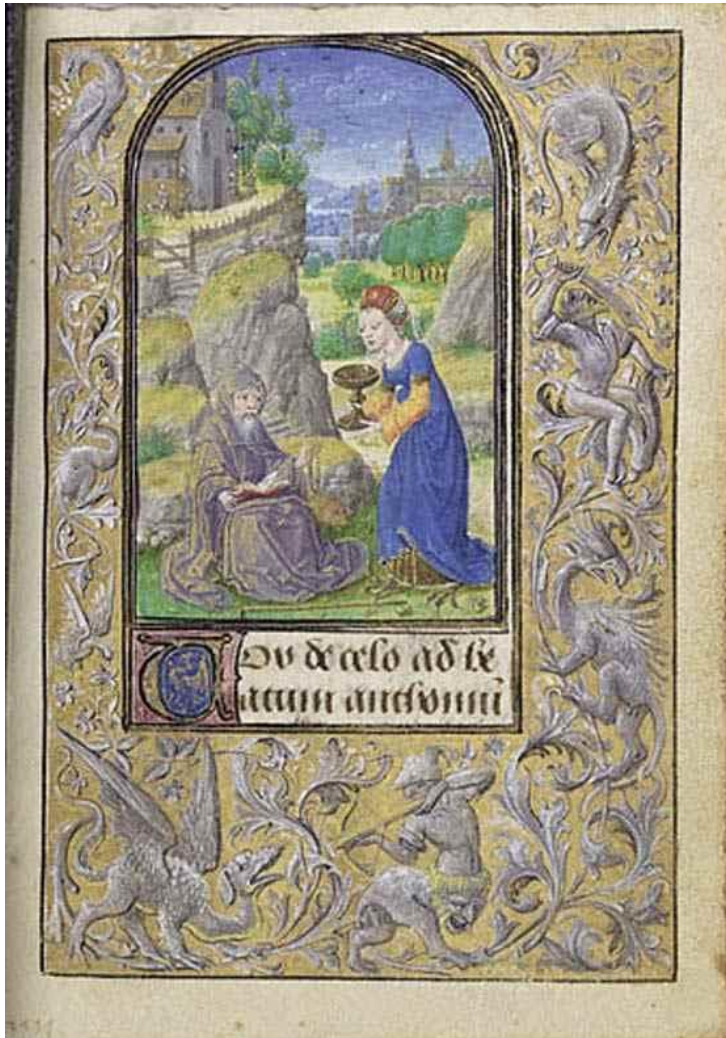 VOx de celo ad be
atum anthoniū